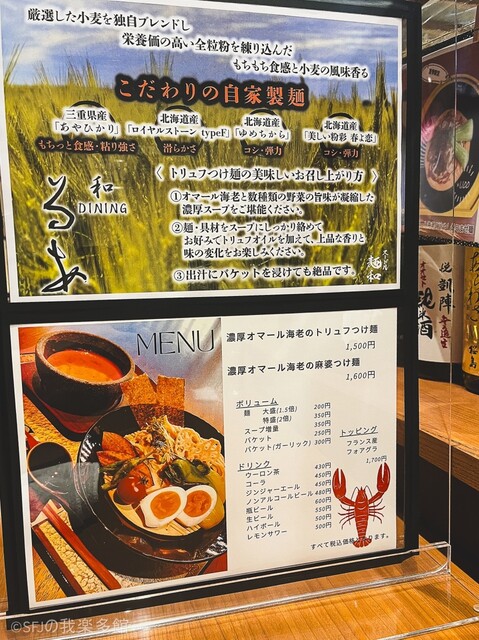 厳選した小麦を独自ブレンドし
栄養価の高い全粒粉を練り込んだ
もちもち食感と小麦の風味香る
こだわりの自家製麺
三重県産
「あやひかり」
もちっと食感・粘り強さ
北海道産
「ロイヤルストーン typeF」
滑らかさ
北海道産
「ゆめちから」
コシ・弾力
北海道産
「美しい粉彩 春よ恋」
コシ・弾力
和
DINING
〈トリュフつけ麺の美味しいお召し上がり方〉
①オマール海老と数種類の野菜の旨味が凝縮した
濃厚スープをご堪能ください。
②麺・具材をスープにしっかり絡めて
お好みでトリュフオイルを加えて、上品な香りと
味の変化をお楽しみください。
③出汁にバケットを浸けても絶品です。
MENU
濃厚オマール海老のトリュフつけ麺
1,500円
濃厚オマール海老の麻婆つけ麺
1,600円
ボリューム
麺 大盛(1.5倍) 200円
特盛(2倍) 350円
スープ増量 350円
バケット 250円
バケット(ガーリック) 300円
トッピング
フランス産
フォアグラ
1,700円
ドリンク
ウーロン茶 430円
コーラ 450円
ジンジャーエール 450円
ノンアルコールビール 480円
瓶ビール 600円
生ビール 550円
ハイボール 500円
レモンサワー 500円
すべて税込価格となります。
©SFJの我楽多館